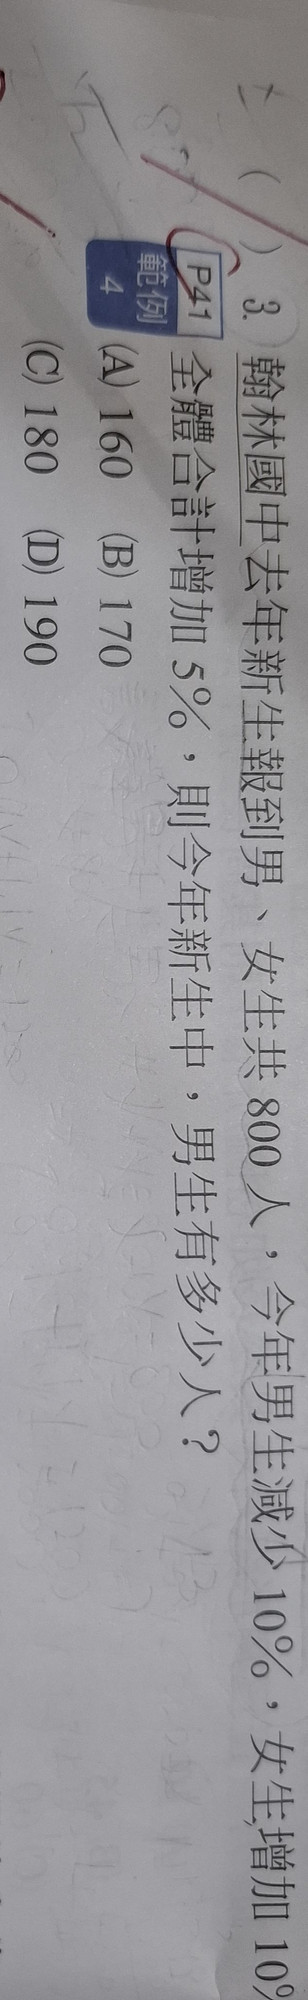 ( ) 3. 翰林國中去年新生報到男、女生共 800 人，今年男生減少 10%，女生增加 10%
P41 範例 4
全體合計增加 5%，則今年新生中，男生有多少人？
(A) 160 (B) 170
(C) 180 (D) 190